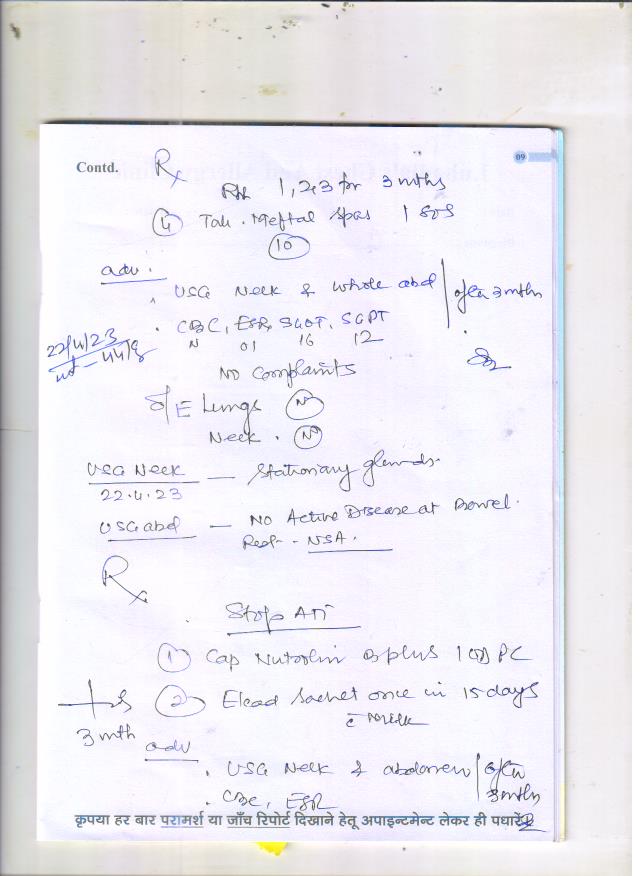 Contd.
09
Rx
Rx 1, 2 & 3 for 3 mths
(4) Tab. Meftal Spas 1 SOS
(10)
adv.
USG Neck & whole abd
after 3 mths
CBC, ESR, SGOT, SGPT
N 01 16 12
22/4/23
NO Complaints
O/E Lungs (N)
Neck. (N)
USG Neck — Stationary glands.
22.4.23
USG abd — No Active Disease at Bowel.
Rest - NSA.
Rx
Stop ATT
(1) Cap Nutrolin B plus 1 OD PC
(2) sachet once in 15 days
c̄ Milk
3 mth
adv
. USG Neck & abdomen
after 3 mths
. CBC, ESR
कृपया हर बार परामर्श या जाँच रिपोर्ट दिखाने हेतू अपाइन्टमेन्ट लेकर ही पधारें